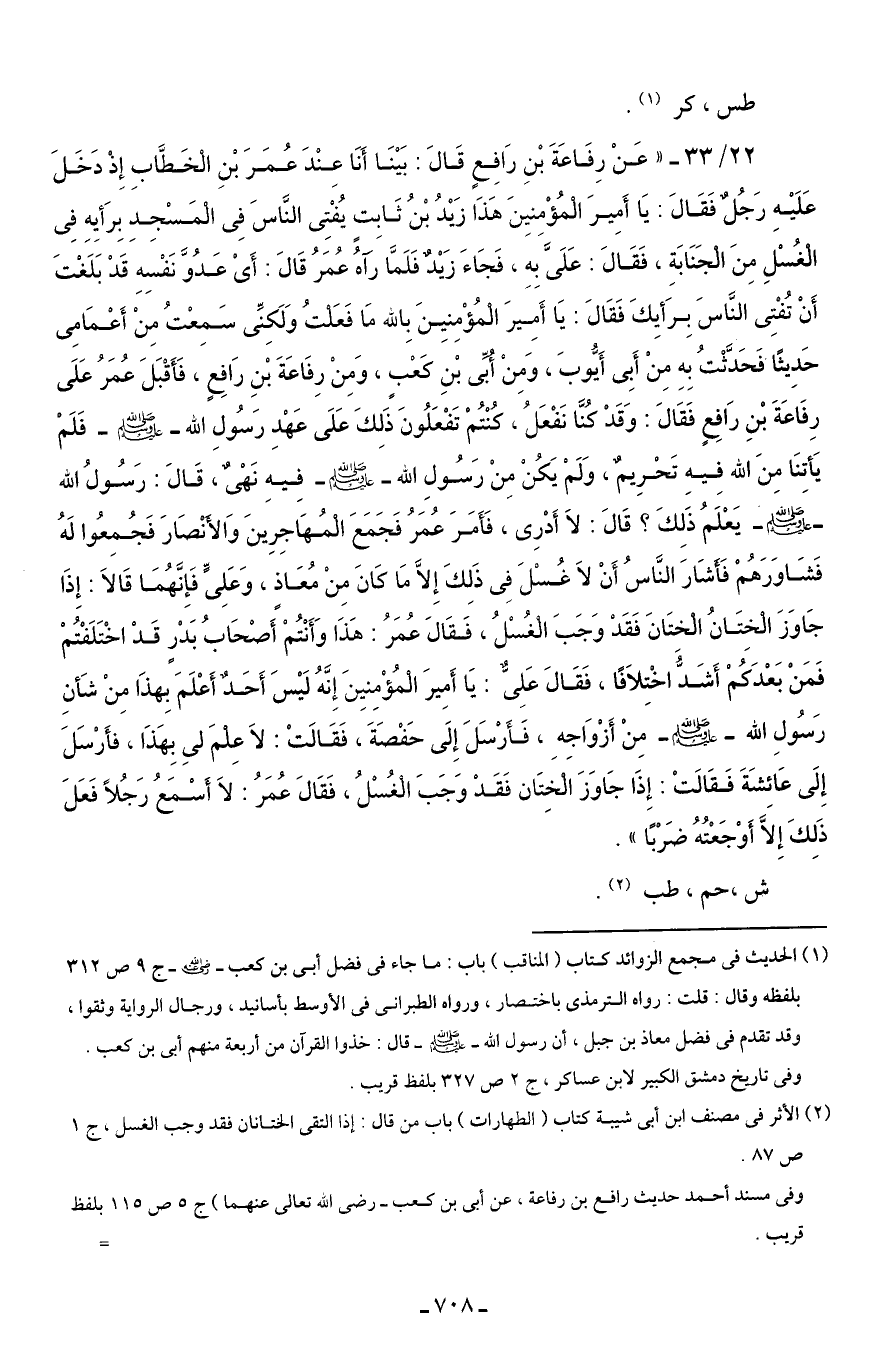 طس ، كر (١) .
٣٣/٢٢ ـ « عَنْ رِفَاعَةَ بْنِ رَافِعٍ قَالَ : بَيْنَا أَنَا عِنْدَ عُمَرَ بْنِ الْخَطَّابِ إِذْ دَخَلَ
عَلَيْهِ رَجُلٌ فَقَالَ : يَا أَمِيرَ الْمُؤْمِنِينَ هَذَا زَيْدُ بْنُ ثَابِتٍ يُفْتِى النَّاسَ فِى الْمَسْجِدِ بِرَأيِهِ فِى
الْغُسْلِ مِنَ الْجَنَابَةِ ، فَقَالَ : عَلَىَّ بِهِ ، فَجَاءَ زَيْدٌ فَلَمَّا رَآهُ عُمَرُ قَالَ : أَىْ عَدُوَّ نَفْسِهِ قَدْ بَلَغْتَ
أَنْ تُفْتِى النَّاسَ بِرَأيِكَ فَقَالَ : يَا أَمِيرَ الْمُؤْمِنِينَ بِاللهِ مَا فَعَلْتُ وَلَكِنِّى سَمِعْتُ مِنْ أَعْمَامِى
حَدِيثًا فَحَدَّثْتُ بِهِ مِنْ أَبِى أَيُّوبَ ، وَمِنْ أُبِىِّ بْنِ كَعْبٍ ، وَمِنْ رِفَاعَةَ بْنِ رَافِعٍ ، فَأَقْبَلَ عُمَرُ عَلَى
رِفَاعَةَ بْنِ رَافِعٍ فَقَالَ : وَقَدْ كُنَّا نَفْعَلُ ، كُنْتُمْ تَفْعَلُونَ ذَلِكَ عَلَى عَهْدِ رَسُولِ اللهِ ـ ﷺ ـ فَلَمْ
يَأتِنَا مِنَ اللهِ فِيهِ تَحْرِيمٌ ، وَلَمْ يَكُنْ مِنْ رَسُولِ اللهِ ـ ﷺ ـ فِيهِ نَهْىٌ ، قَالَ : رَسُولُ اللهِ
ـ ﷺ ـ يَعْلَمُ ذَلِكَ ؟ قَالَ : لاَ أَدْرِى ، فَأَمَرَ عُمَرُ فَجَمَعَ الْمُهَاجِرِينَ وَالأَنْصَارَ فَجُمِعُوا لَهُ
فَشَاوَرَهُمْ فَأَشَارَ النَّاسُ أَنْ لاَ غُسْلَ فِى ذَلِكَ إِلاَّ مَا كَانَ مِنْ مُعَاذٍ ، وَعَلِىٍّ فَإِنَّهُمَا قَالاَ : إِذَا
جَاوَزَ الْخِتَانُ الْخِتَانَ فَقَدْ وَجَبَ الْغُسْلُ ، فَقَالَ عُمَرُ : هَذَا وَأَنْتُمْ أَصْحَابُ بَدْرٍ قَدِ اخْتَلَفْتُمْ
فَمَنْ بَعْدَكُمْ أَشَدُّ اخْتِلاَفًا ، فَقَالَ عَلِىٌّ : يَا أَمِيرَ الْمُؤْمِنِينَ إِنَّهُ لَيْسَ أَحَدٌ أَعْلَمَ بِهذَا مِنْ شَأنِ
رَسُولِ اللهِ ـ ﷺ ـ مِنْ أَزْوَاجِهِ ، فَأَرْسَلَ إِلَى حَفْصَةَ ، فَقَالَتْ : لاَ عِلْمَ لِى بِهَذَا ، فأَرْسَلَ
إِلَى عَائِشَةَ فَقَالَتْ : إِذَا جَاوَزَ الْخِتَانِ فَقَدْ وَجَبَ الْغُسْلُ ، فَقَالَ عُمَرُ : لاَ أَسْمَعُ رَجُلاً فَعَلَ
ذَلِكَ إِلاَّ أَوْجَعْتُهُ ضَرْبًا » .
ش ، حم ، طب (٢) .
(١) الحديث فى مجمع الزوائد كتاب ( المناقب ) باب : ما جاء فى فضل أبى بن كعب ـ رضي الله عنه ـ ج ٩ ص ٣١٢
بلفظه وقال : قلت : رواه الترمذى باختصار ، ورواه الطبرانى فى الأوسط بأسانيد ، ورجال الرواية وثقوا ،
وقد تقدم فى فضل معاذ بن جبل ، أن رسول الله ـ ﷺ ـ قال : خذوا القرآن من أربعة منهم أبى بن كعب .
وفى تاريخ دمشق الكبير لابن عساكر ، ج ٢ ص ٣٢٧ بلفظ قريب .
(٢) الأثر فى مصنف ابن أبى شيبة كتاب ( الطهارات ) باب من قال : إذا التقى الختانان فقد وجب الغسل ، ج ١
ص ٨٧ .
وفى مسند أحمد حديث رافع بن رفاعة ، عن أبى بن كعب ـ رضى الله تعالى عنهما ) ج ٥ ص ١١٥ بلفظ
قريب . =
ـ ٧٠٨ ـ